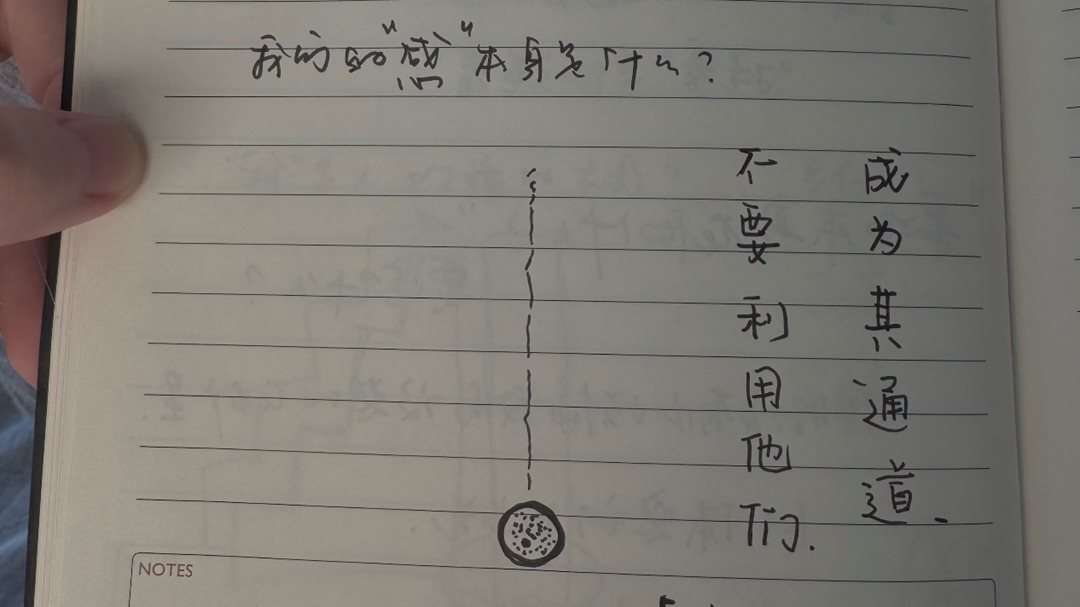 我的的"感"本身是什么?
成为其通道.
不要利用他们.
NOTES